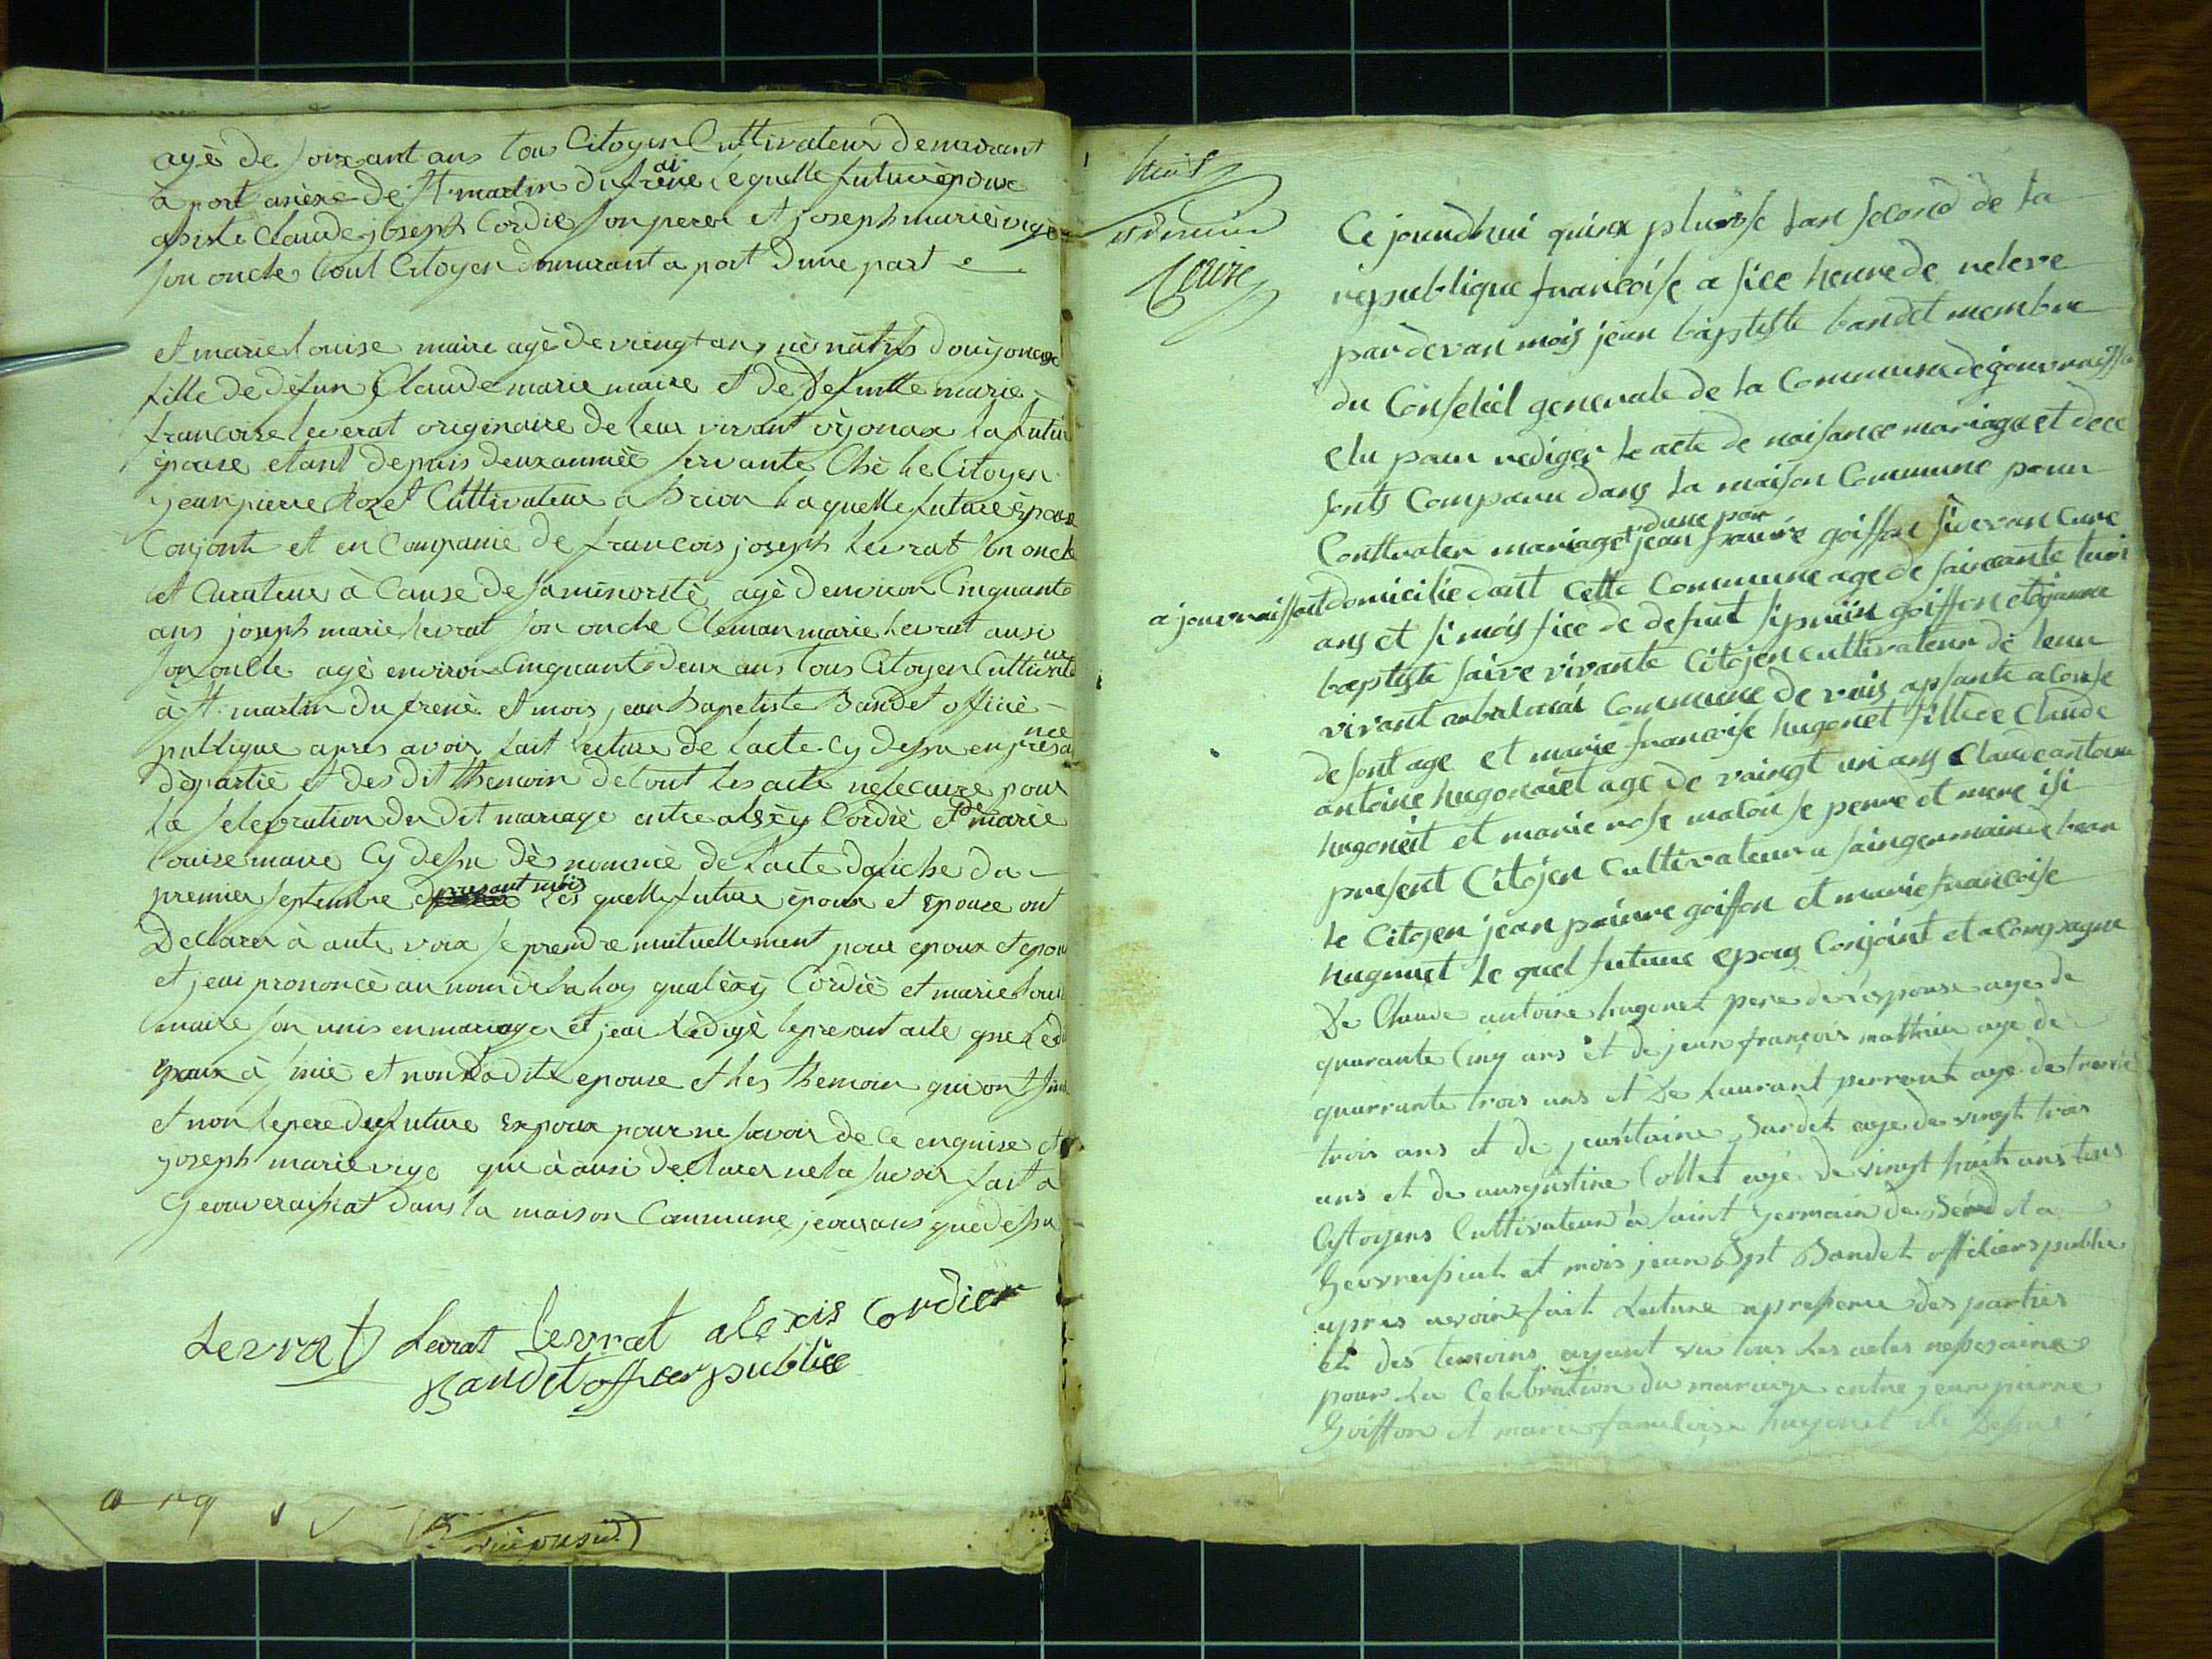 agè de soixant ans tou Citoyen Cultivateur demeurant
à port anèxe de St. martin du fraine lequelle future èpouxe
asisté Claude joseph Cordier son perer et joseph marie vige
son oncle tout Citoyen demeurant a port dune part
et marie louise maire agè de viengt ans nè natifs d'ouyonaxe
fille de dèfun Claude marie maire et de defunte marie
francoise leverat originaire de leur vivant oyonax la futur
èpouse etant depuis deux annèe servante Chè le Citoyen
jean pierre Rozet Cultivateur à Brion laquelle future èpouse
Conjoint et en Companie de francois joseph levrat son oncle
et Curateur à Cause de sa minoritè agè d'environ Cinquante
ans joseph marie levrat son oncle Cleman marie levrat ausi
son onlle agè environ Cinquante deux ans tous Citoyen Cultivateur
à St. martin du frenè et mois jean Bapetiste Bandet officiè
publique apres avoir fait lecture de l'acte Cy dessu en presance
dèpartiè et des dit themoin de tout les acte nesecaire pour
la selebration du dit mariage entre alexy Cordiè et marie
louise maire Cy dessu dènommèe de l'acte dafiche du
premier septembre presant mois les quelle future èpoux et Epouxe ont
Declarer à aute voix se prendre mutuellement pour epoux et epou
et jeai prononcè au nom de la loy qualèxy Cordiè et marie loui
maire son unis en mariage et jeai Redigè le presant acte que le dit
Epoux à sinè et non Ladite epouse et les themoin qui ont sinè
et non le pere du future Expoux pour ne savoir de ce enquise et
joseph marie vige qui à ausi declarer ne la savoir fait a
Geouvraissiat dans la maison Commune jeour ans que dessu
Levrat Levrat levrat alexis Cordier
Bandet officier publice
huit
et dernier
Ce jourdhui quinx pluviôse l'an second de la
republique francoise a sice heure de relere
pardevan mois jean baptiste bandet membre
du Conseliel generale de la Commune de gouvraissia
elu pour rediger le acte de naisance mariage et dece
sonts Comparu dans la maison Commune pour
Conttrater mariage dune par jean praiere goiffon sidevan Cure
a jouvraissiat domicilie dant cette Commune age de soixante tuis
ans et si mois fice de defunt siprien goiffon et janne
baptiste faivre vivante Citojen cultivateur de leur
vivant Commune de vois apsante a Couse
de sont age et marie francoise hugonet fille de Claude
antoine hugonaiet age de vaingt un ans Claude antoine
hugoneit et marie rose matou se perre et mere isi
present Citojen Cultivateur a saingermain de bear
le Citojen jean praiere goiffon et marie francoise
hugonuet le quel future epoux Conjoint et a Compagne
De Claude antoine hugonet pere de l'esponse age de
quarante Cinq ans et de jean françois mathieu age de
quarrante trois ans et De Laurant perrent age de trente
trois ans et de jantoine Bardet age de vingt trois
ans et de ausgustine Collet agé de vingt huit ans tous
Cytoyens Cultivateur à saint Germain de Béard et a
Geovreissiat et mois jean Bpt Bandet officiers publie
apres avoir fait Lecture apresence des parties
et des temoins ayant vu tous Les actes nessesaires
pour La Celebration du mariage entre jean pierre
Goiffon et marie francoise hugonet